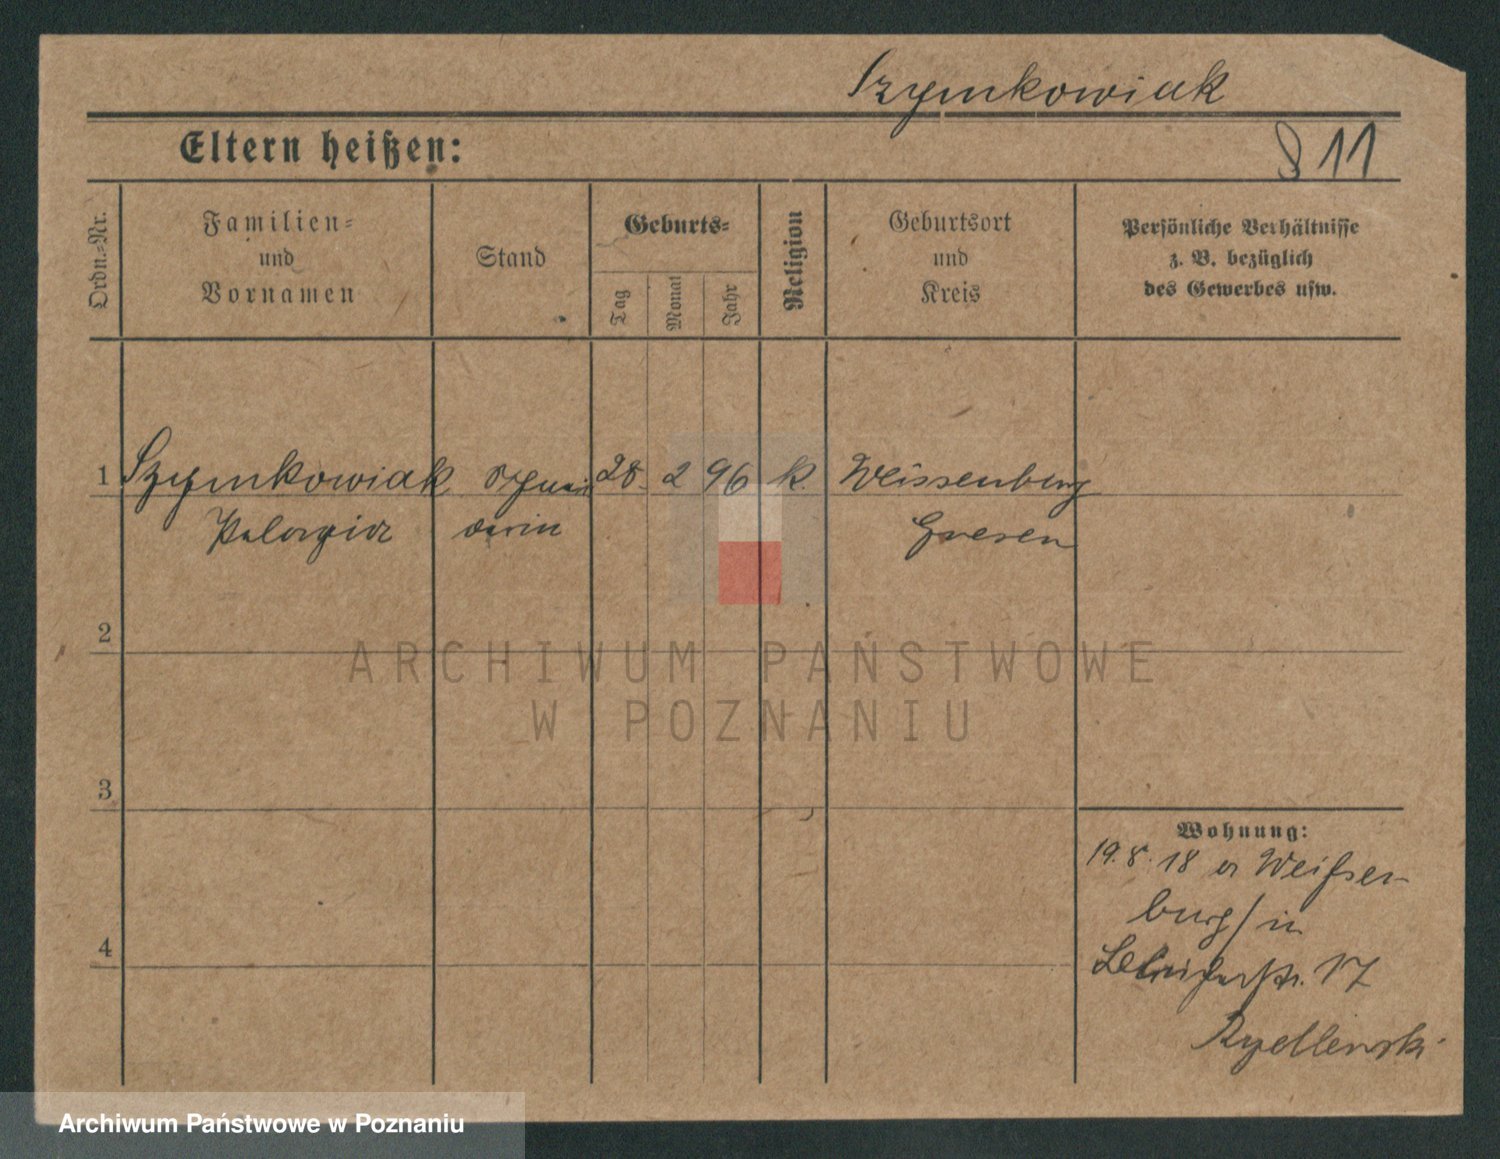 Szymkowiak
Eltern heißen:
§ 11
Ordn.-Nr.
Familien-
und
Vornamen
Stand
Geburts-
Tag
Monat
Jahr
Religion
Geburtsort
und
Kreis
Persönliche Verhältnisse
z. B. bezüglich
des Gewerbes usw.
1 Szymkowiak Schnei 28. 2 96 k. Weissenburg
Pelagia derin Gnesen
2
ARCHIWUM PAŃSTWOWE
W POZNANIU
3
Wohnung:
19.8.18 Weißen
burg / in
4
17
Archiwum Państwowe w Poznaniu